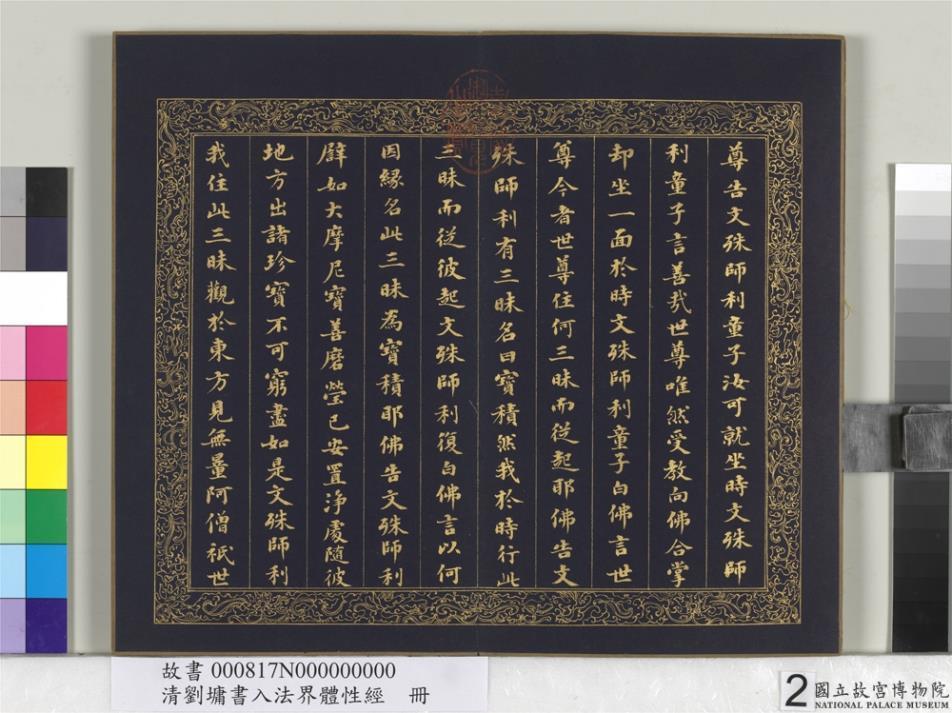 尊告文殊師利童子汝可就坐時文殊師
利童子言善哉世尊唯然受教向佛合掌
却坐一面於時文殊師利童子白佛言世
尊今者世尊住何三昧而從起耶佛告文
殊師利有三昧名曰寶積然我於時行此
三昧而從彼起文殊師利復白佛言以何
因緣名此三昧為寶積耶佛告文殊師利
譬如大摩尼寶善磨瑩已安置淨處隨彼
地方出諸珍寶不可窮盡如是文殊師利
我住此三昧觀於東方見無量阿僧祇世
故書 000817N000000000
清劉墉書入法界體性經 冊
2 國立故宮博物院
NATIONAL PALACE MUSEUM